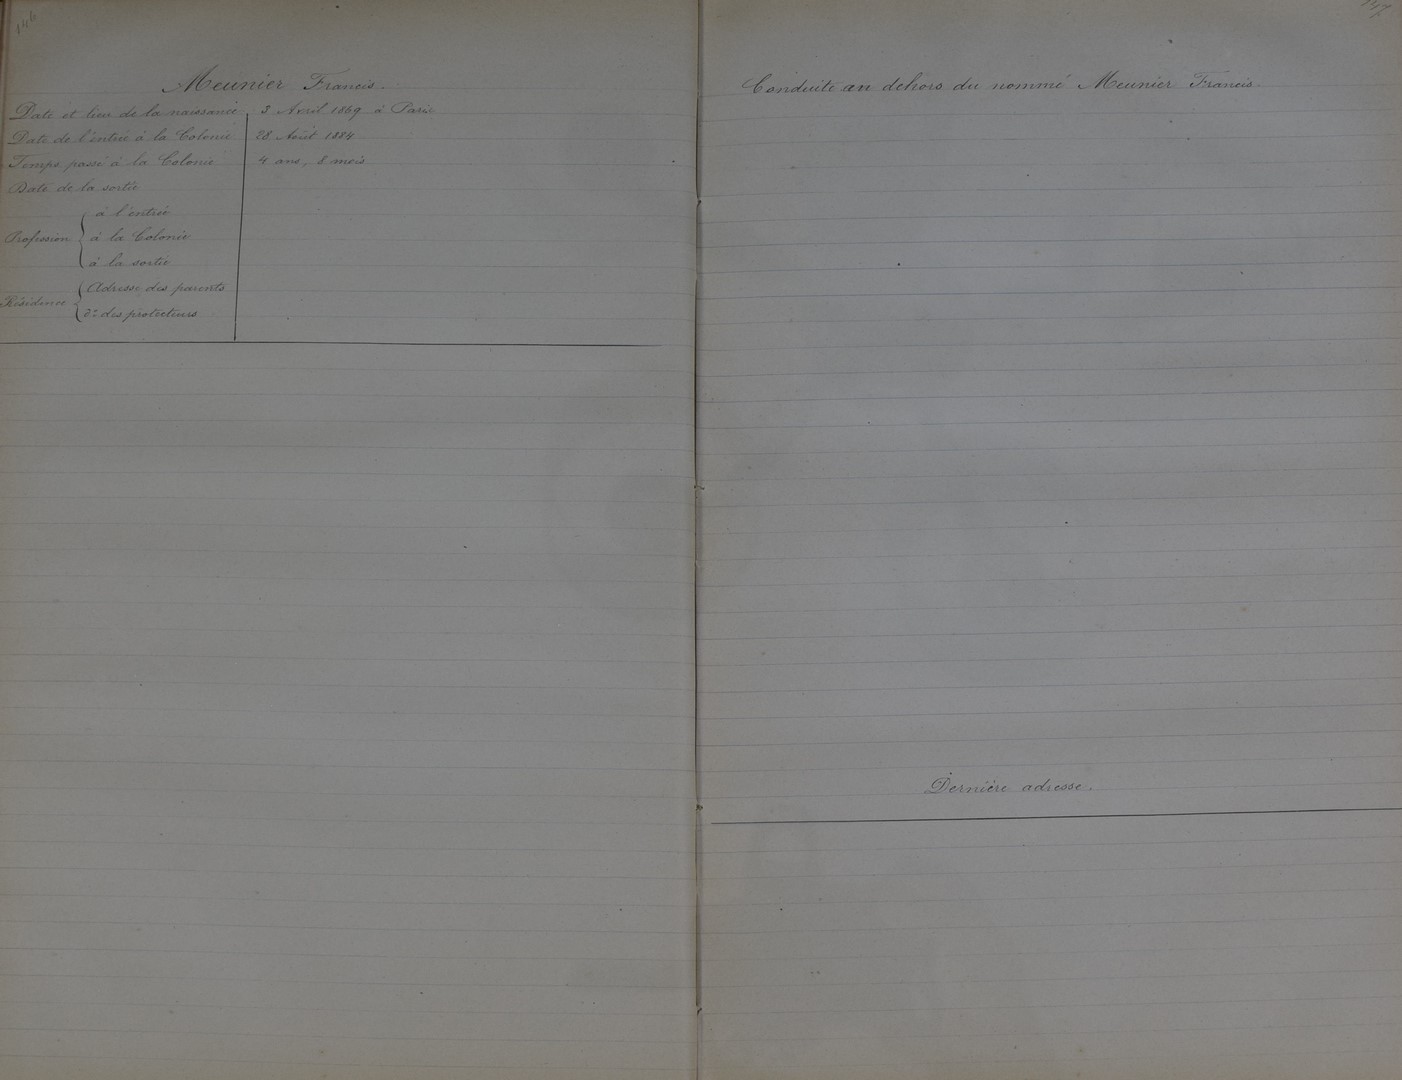 Meunier Francis.
Date et lieu de la naissance 3 Avril 1869 à Paris
Date de l'entrée à la Colonie 28 Août 1884
Temps passé à la Colonie 4 ans, 8 mois
Date de la sortie
à l'entrée
Profession à la Colonie
à la sortie
Adresse des parents
Résidence
d° des protecteurs
Conduite au dehors du nommé Meunier Francis.
Dernière adresse.